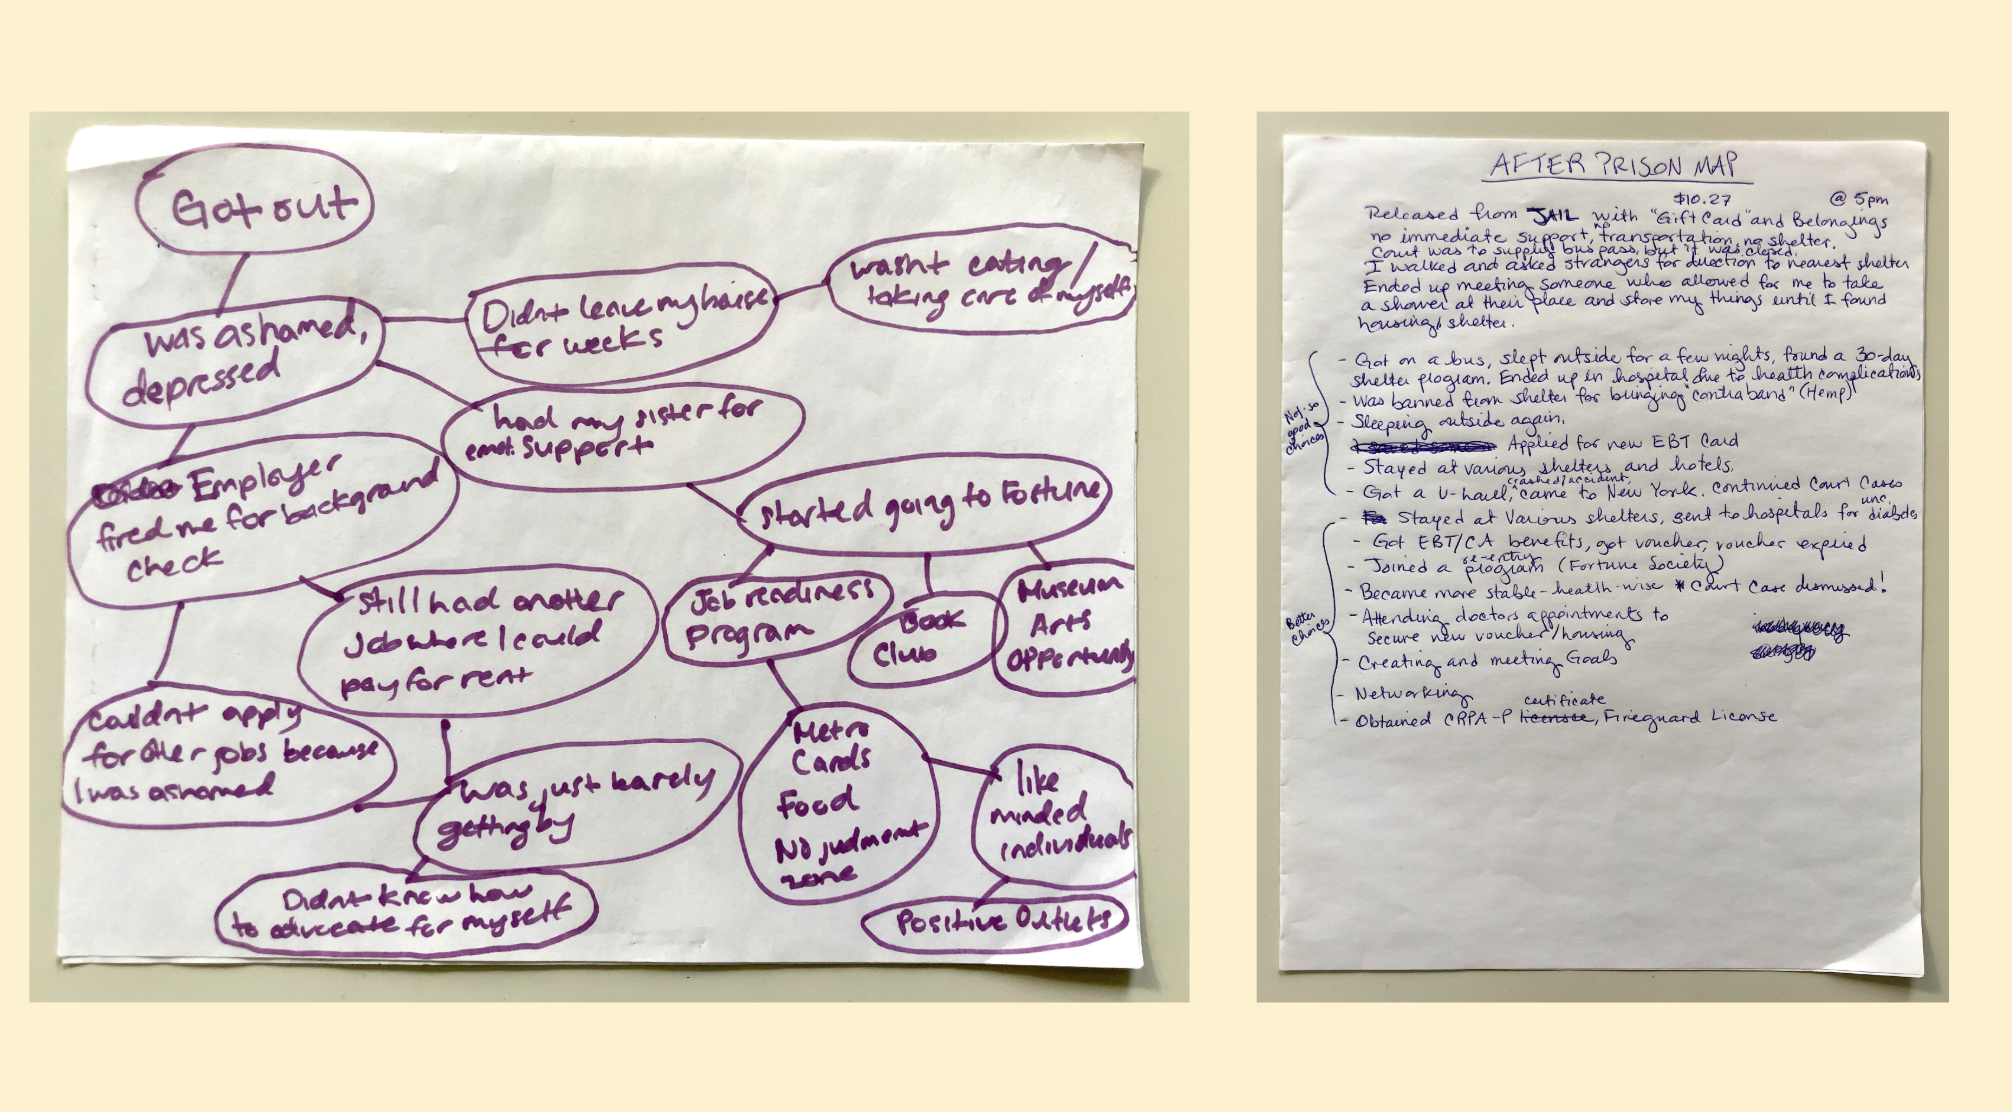 Got out
was ashamed,
depressed
Didnt leave my house
for weeks
wasnt eating/
taking care of myself
had my sister for
emot. support
Employer
fired me for background
check
started going to Fortune
still had another
Job where I could
pay for rent
Job readiness
program
Book
Club
Museum
Arts
Opportunity
couldnt apply
for other jobs because
I was ashamed
was just barely
getting by
Metro
Cards
Food
No judment
zone
like
minded
individuals
Didnt know how
to advocate for myself
Positive Outlets
AFTER PRISON MAP
$10.27 @ 5pm
Released from JAIL with "Gift Card" and Belongings
no immediate support, no transportation, no shelter.
Court was to supply bus pass, but it was closed.
I walked and asked strangers for direction to nearest shelter
Ended up meeting someone who allowed for me to take
a shower at their place and store my things until I found
housing/shelter.
Not-so
good
choices
- Got on a bus, slept outside for a few nights, found a 30-day
shelter program. Ended up in hospital due to health complications
- Was banned from shelter for bringing "contraband" (Hemp)
- Sleeping outside again.
Applied for new EBT Card
- Stayed at various shelters and hotels.
crashed/accident
- Got a U-haul, came to New York. Continued Court Cases
unc.
- Stayed at Various shelters, sent to hospitals for diabetes
- Got EBT/CA benefits, got voucher, voucher expired
re-entry
- Joined a program (Fortune Society)
- Became more stable - health-wise * Court Case dismissed!
Better
Choices
- Attending doctors appointments to
secure new voucher/housing
- Creating and meeting Goals
- Networking
certificate
- Obtained CRPA-P licensee, Fireguard License